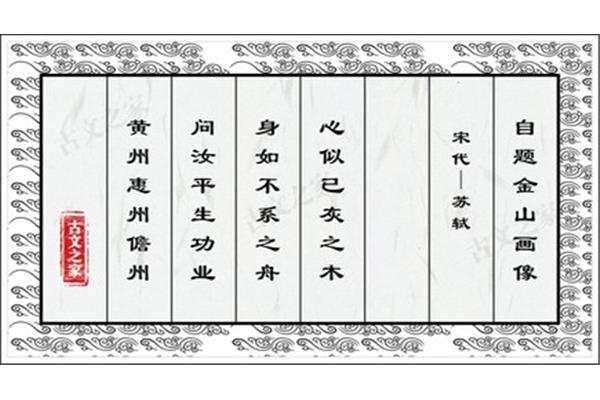 自题金山画像
宋代—苏轼
心似已灰之木
身如不系之舟
问汝平生功业
黄州惠州儋州
古文之家
古文之家
古文之家
古文之家